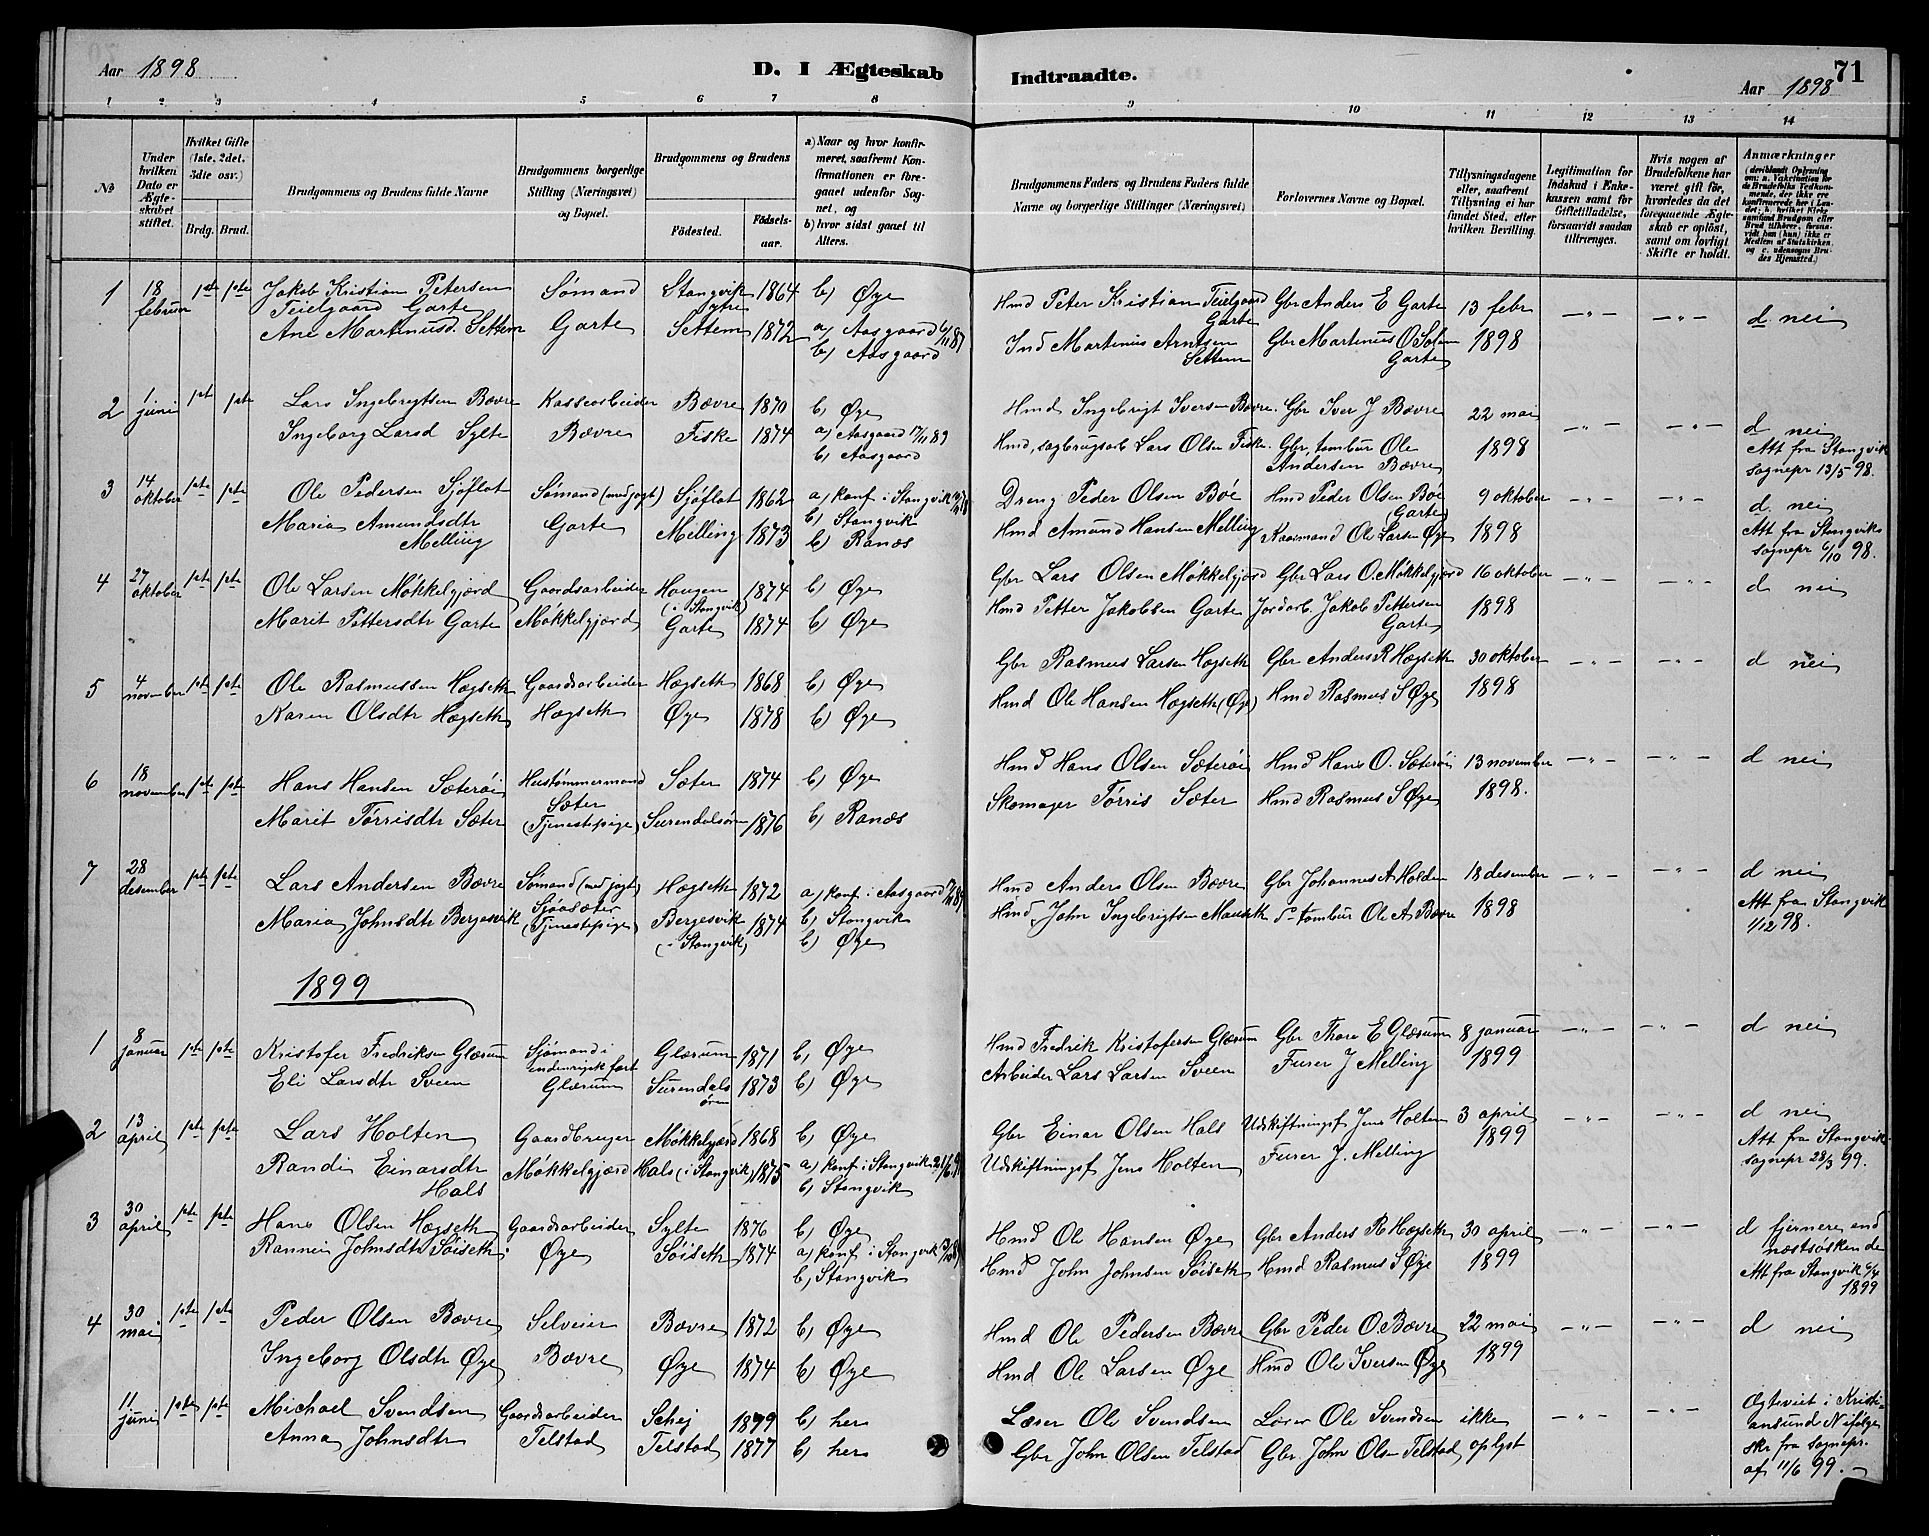 Aar 1898
D. I Ægteskab Indtraadte.
71
Aar 1898
1 2 3 4 5 6 7 8 9 10 11 12 13 14
No
Under hvilken Dato er Ægteskabet stiftet.
Hvilket Gifte (1ste, 2det, 3die osv.)
Brdg. Brud.
Brudgommens og Brudens fulde Navne
Brudgommens borgerlige Stilling (Næringsvei) og Bopæl.
Brudgommens og Brudens
Fødested. Fødselsaar.
a) Naar og hvor konfirmeret, saafremt Konfirmationen er foregaaet udenfor Sognet, og
b) hvor sidst gaaet til Alters.
Brudgommens Faders og Brudens Faders fulde Navne og borgerlige Stillinger (Næringsvei)
Forlovernes Navne og Bopæl.
Tillysningsdagene eller, saafremt Tillysning ei har fundet Sted, efter hvilken Bevilling.
Legitimation for Indskud i Enkekassen samt for Giftetilladelse, forsaavidt saadan tiltrænges.
Hvis nogen af Brudefolkene har været gift før, hvorledes da det foregaaende Ægteskab er opløst, samt om lovligt Skifte er holdt.
Anmærkninger (deriblandt Oplysning om: a. Vakcination for de Brudefolks Vedkommende, der ikke ere konfirmerede her i Landet; b. hvilket Kirkesamfund Brudgom eller Brud tilhører, forsaavidt han (hun) ikke er Medlem af Statskirken, og c. udensogns Brudes Hjemsted.)
1 18 februar 1ste 1ste Jakob Kristian Petersen Teielgaard Garte Sømand Stangvik ytre 1864 b) Øye Hmd Peter Kristian Teielgaard Garte Gbr Anders E Garte 13 febr — " — — " — d nei
Ane Martinusd. Settem Garte Settem 1872 a) Aasgaard b) Aasgaard Ind Martinus Arntsen Settem Gbr Martinus O Garte 1898
2 1 juni 1ste 1ste Lars Ingebrigtsen Bævre Kassearbeider Bævre 1870 b) Øye Hmd Ingebrigt Iversen Bævre Gbr Iver J Bævre 22 mai — " — — " — d nei
Ingeborg Larsd Sylte Bævre Fiske 1874 a) Aasgaard 17/11 89 b) Aasgaard Hmd, sagbrugsarb Lars Olsen Fiske Gbr, tambur Ole Andersen Bævre 1898 Att fra Stangvik sognepr 13/5 98.
3 14 oktober 1ste 1ste Ole Pedersen Sjøflot Sømand (med jagt) Sjøflot 1862 a) konf i Stangvik b) Stangvik Dreng Peder Olsen Bøe Hmd Peder Olsen Bøe (Garte) 9 oktober — " — — " — d. nei
Maria Amundsdtr Melling Garte Melling 1873 b) Ranæs Hmd Amund Hansen Melling Kaarmand Ole Larsen Øye 1898 Att fra Stangviks sognepr 6/10 98.
4 27 oktober 1ste 1ste Ole Larsen Møkkelgjerd Gaardsarbeider Haugen (i Stangvik) 1874 b) Øye Gbr Lars Olsen Møkkelgjerd Gbr Lars O. Møkkelgjerd 16 oktober — " — — " — d nei
Marit Pettersdtr Garte Møkkelgjerd Garte 1874 b) Øye Hmd Petter Jakobsen Garte Jordarb. Jakob Pettersen Garte 1898
5 4 november 1ste 1ste Ole Rasmussen Hægseth Gaardsarbeider Hægseth 1868 b) Øye Gbr Rasmus Larsen Hægseth Gbr Anders R Hægseth 30 oktober — " — — " — d nei
Karen Olsdtr Hægseth Hægseth Øye 1878 b) Øye Hmd Ole Hansen Hægseth (Øye) Hmd Rasmus S Øye 1898
6 18 november 1ste 1ste Hans Hansen Sæterøi Hustømmermand Sæter Sæter 1874 b) Øye Hmd Hans Olsen Sæterøi Hmd Hans O. Sæterøi 13 november — " — — " — d nei
Marit Tørrisdtr Sæter (Tjenestepige) Surendalsøren 1876 b) Ranæs Skomager Tørris Sæter Hmd Rasmus S Øye 1898.
7 28 desember 1ste 1ste Lars Andersen Bævre Sømand (med jagt) Sjøasæter Hægseth 1872 a) konf. i Aasgaard b) Stangvik Hmd Anders Olsen Bævre Gbr Johannes A Holden 18 desember — " — — " — d nei
Maria Johnsdtr Bergesvik (Tjenestepige) Bergesvik (i Stangvik) 1874 b) Øye Hmd John Ingebrigtsen tambur Ole A Bævre 1898 Att fra Stangvik 1/12 98.
1899
1 8 januar 1ste 1ste Kristofer Fredriksen Glærum Sjømand i indenrigsk fart Glærum 1871 b) Øye Hmd Fredrik Kristofersen Glærum Gbr Thore E Glærum 8 januar — " — — " — d nei
Eli Larsdtr Sveen Glærum Surendalsøren 1873 b) Øye Arbeider Lars Larsen Sveen Furer J Melling 1899
2 13 april 1ste 1ste Lars Holten Gaardbruger Møkkelgjerd 1868 b) Øye Gbr Einar Olsen Hals Udskiftningsf Jens Holten 3 april — " — — " — d nei
Randi Einarsdtr Hals Møkkelgjerd Hals (i Stangvik) 1875 a) konf i Stangvik b) Stangvik Udskiftningsf Jens Holten Furer J. Melling 1899 Att fra Stangvik sognepr 28/3 99.
3 30 april 1ste 1ste Hans Olsen Hægseth Gaardsarbeider Sylte 1876 b) Øye Hmd Ole Hansen Øye Gbr Anders R Hægseth 30 april — " — — " — d fjernere end næstsøskende
Rannei Johnsdtr Søiseth Øye Søiseth 1874 a) konf. i Stangvik b) Stangvik Hmd John Johnsen Søiseth Hmd Rasmus S Øye 1899 Att fra Stangvik 6/4 1899
4 30 mai 1ste 1ste Peder Olsen Bævre Selveier Bævre 1872 b) Øye Hmd Ole Pedersen Bævre Gbr Peder O. Bævre 22 mai — " — — " — d nei
Ingeborg Olsdtr Øye Bævre Øye 1874 b) Øye Hmd Ole Larsen Øye Hmd Ole Iversen Øye 1899
11 juni 1ste 1ste Michael Svendsen Gaardsarbeider Schej 1879 b) her Læser Ole Svendsen Lærer Ole Svendsen ikke — " — — " — Ægteviet i Kristiansund N ifølge
Anna Johnsdtr Telstad Telstad 1877 b) her Gbr John Olsen Telstad Gbr John Olsen Telstad oplyst skr fra sognepr. af 11/6 99.